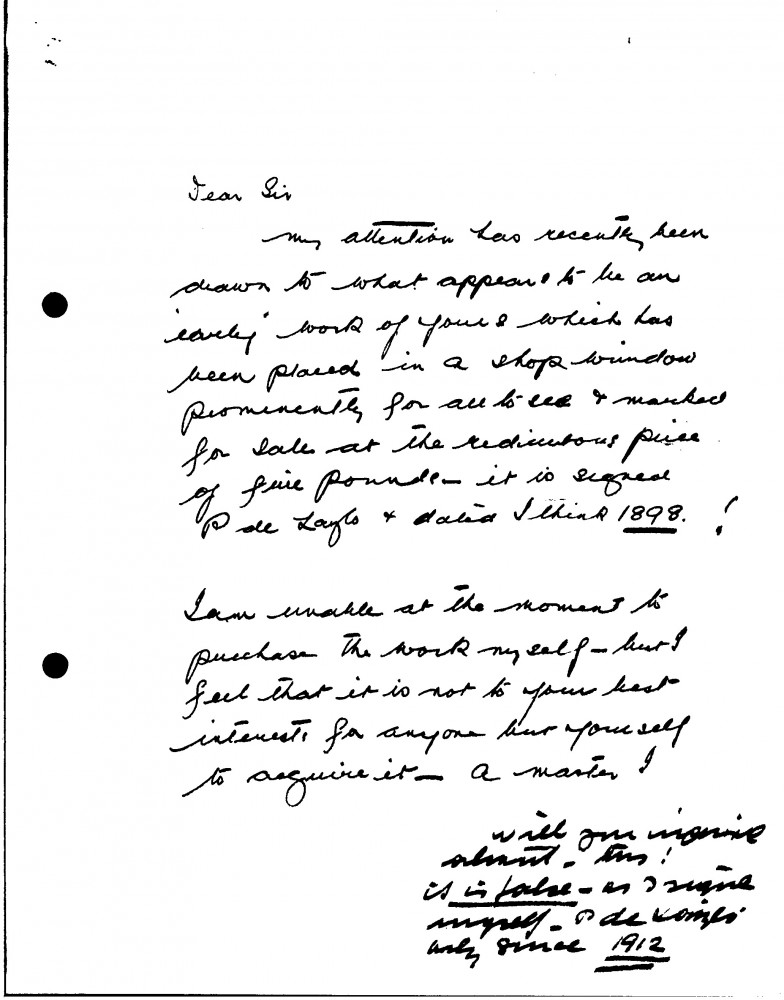 Dear Sir
my attention has recently been
drawn to what appears to be an
'early' work of yours which has
been placed in a shop window
prominently for all to see & marked
for sale at the rediculous price
of five pounds - it is signed
P de Laszlo & dated I think 1898. !
I am unable at the moment to
purchase the work myself - but I
feel that it is not to your best
interests for anyone but yourself
to acquire it - A master I
will you inquire
about - this!
it is false - as I signe
myself - P de Laszlo
only since 1912